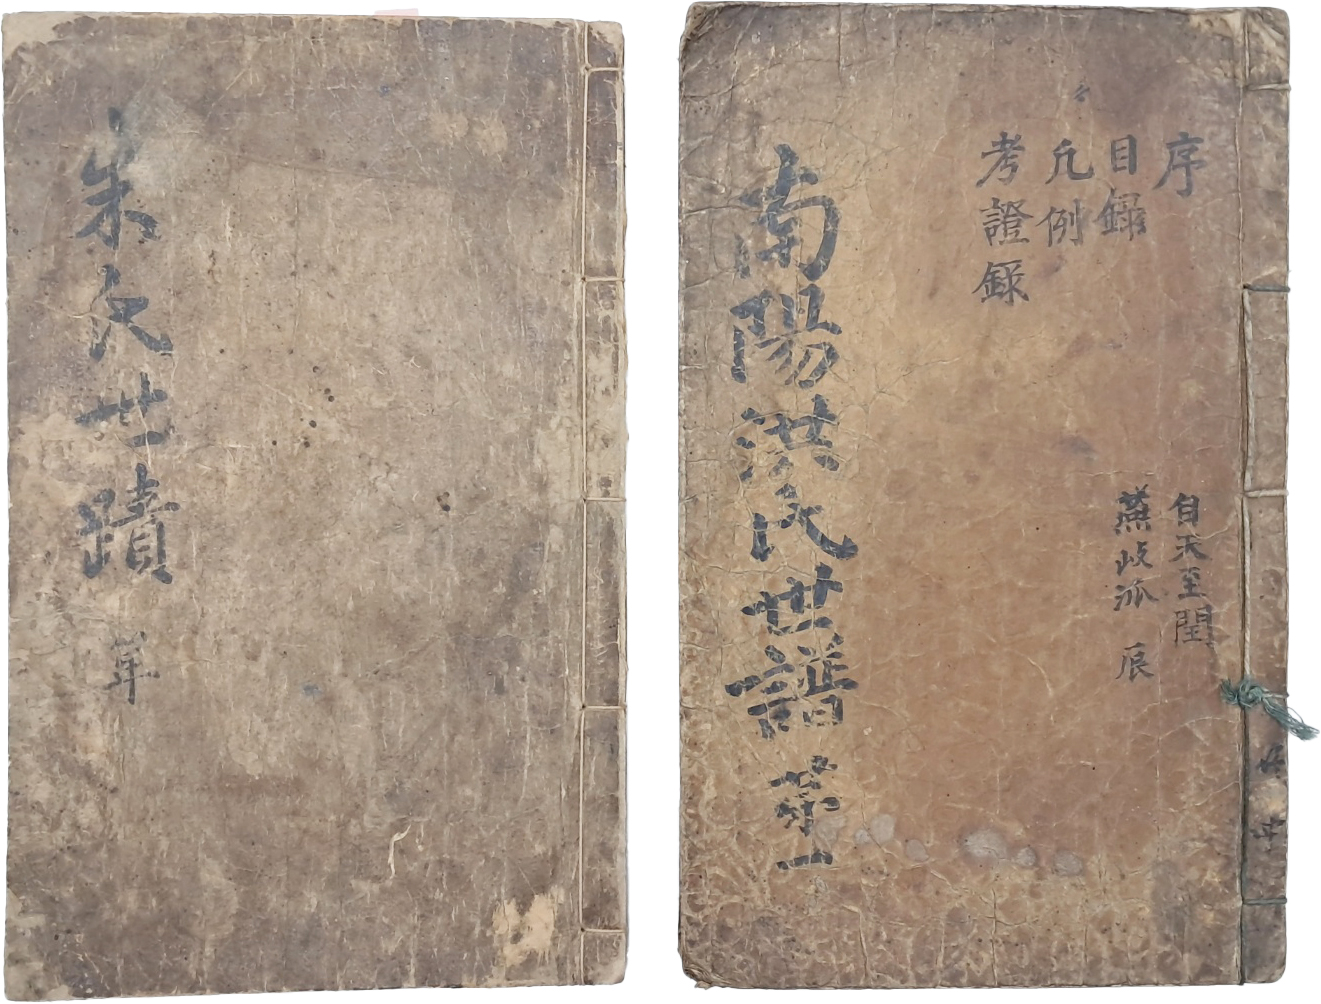 朱氏世蹟 單
序
目錄
凡例
考證錄
自天至閏
燕岐派
南陽洪氏世譜 第一